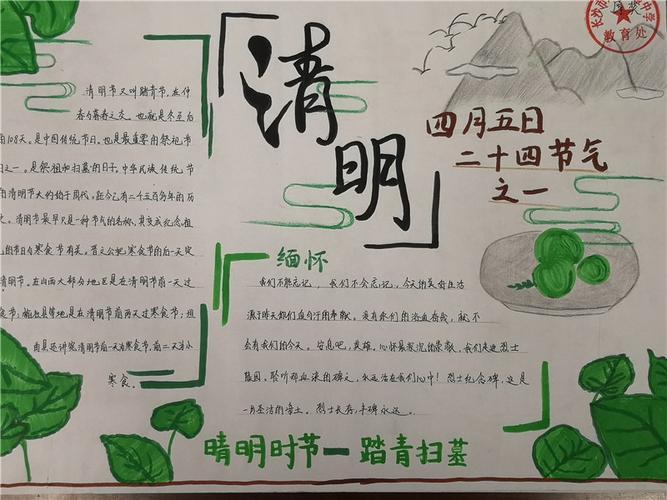 「清明」
四月五日
二十四节气
之一
清明节又叫踏青节,在仲
春与暮春之交,也就是冬至后
的108天。是中国传统节日,也是最重要的祭祀节
日之一,是祭祖和扫墓的日子。中华民族传统节
日清明节大约始于周代,距今已有二千五百多年的历
史。清明节最早只是一种节气的名称,其变成纪念祖
先的节日与寒食节有关。晋文公把寒食节的后一天定
清明节。在山西大部分地区是在清明节前一天过
寒食节;榆社县等地是在清明节前两天过寒食节;
垣曲还讲究清明节前一天为寒食节,前二天为小
寒食。
缅怀
我们不能忘记,我们不会忘记,今天的美好生活
源于昨天都们血与汗的奉献。没有你们的浴血奋战,就不
会有我们的今天。安息吧,英雄。心怀最
我们走进烈士
陵园,聆听那血染的碑文,永远活在我们心中!烈士纪念碑,这是
一片圣洁的净土。烈士长存,丰碑永远。
晴明时节一踏青扫墓
长沙市
中学
教育处